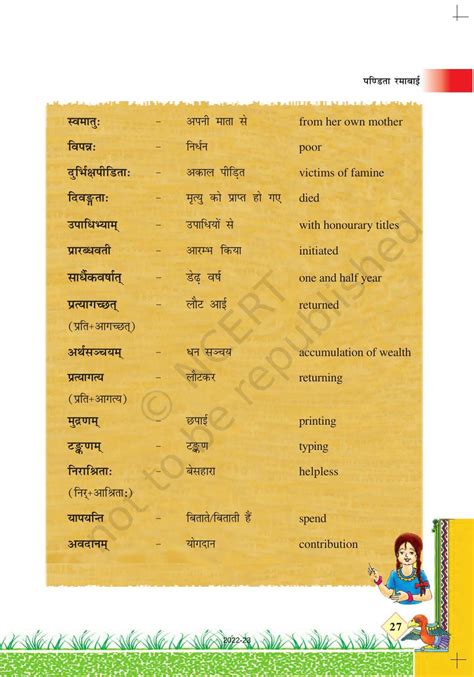 पण्डिता रमाबाई
स्वमातुः – अपनी माता से from her own mother
विपन्नः – निर्धन poor
दुर्भिक्षपीडिताः – अकाल पीड़ित victims of famine
दिवङ्गताः – मृत्यु को प्राप्त हो गए died
उपाधिभ्याम् – उपाधियों से with honourary titles
प्रारब्धवती – आरम्भ किया initiated
सार्धैकवर्षात् – डेढ़ वर्ष one and half year
प्रत्यागच्छत् – लौट आई returned
(प्रति+आगच्छत्)
अर्थसञ्चयम् – धन सञ्चय accumulation of wealth
प्रत्यागत्य – लौटकर returning
(प्रति+आगत्य)
मुद्रणम् – छपाई printing
टङ्कणम् – टङ्कण typing
निराश्रिताः – बेसहारा helpless
(निर्+आश्रिताः)
यापयन्ति – बिताते/बिताती हैं spend
अवदानम् – योगदान contribution
© NCERT
not to be republished
27
2022-23